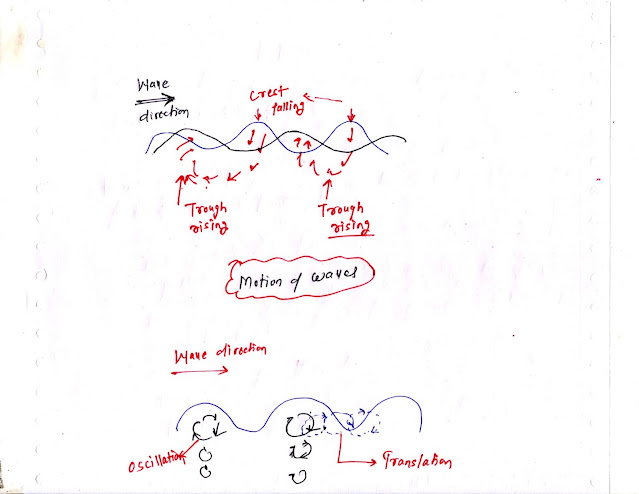 Wave
direction
Crest
falling
Trough
rising
Trough
rising
Motion of waves
Wave direction
Oscillation
Translation